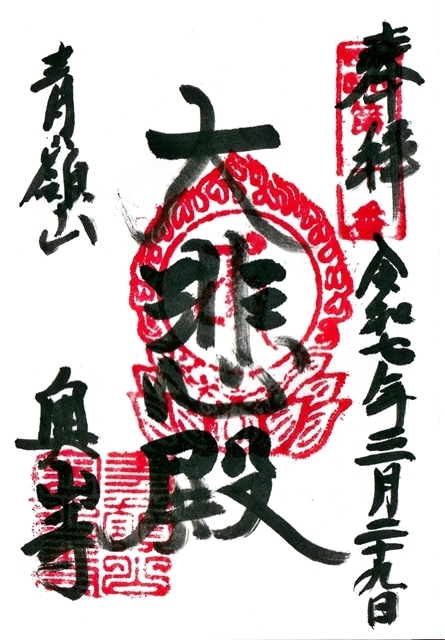 奉拝
令和七年三月二十九日
大悲殿
青嶺山
奥山寺